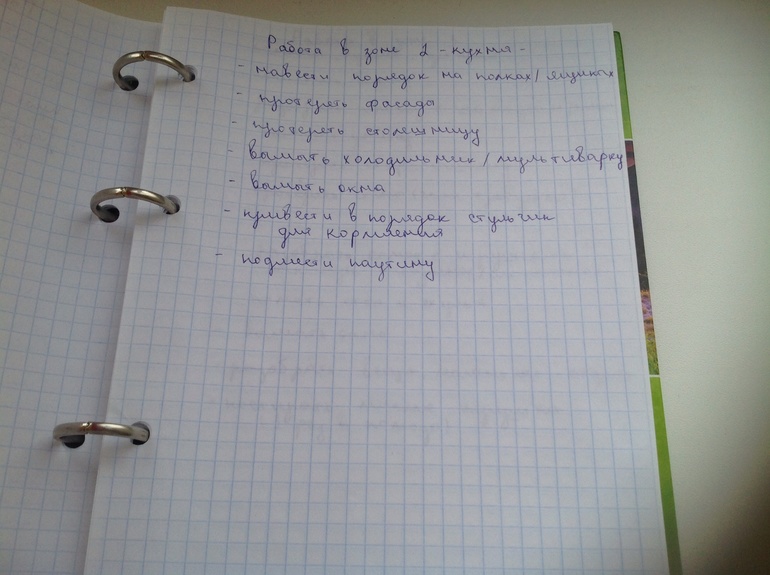 Работа в зоне 2 - кухня -
- навести порядок на полках/ящиках
- протереть фасада
- протереть столешницу
- вымыть холодильник/мультиварку
- вымыть окна
- привести в порядок стульчик
для кормления
- подмести паутину